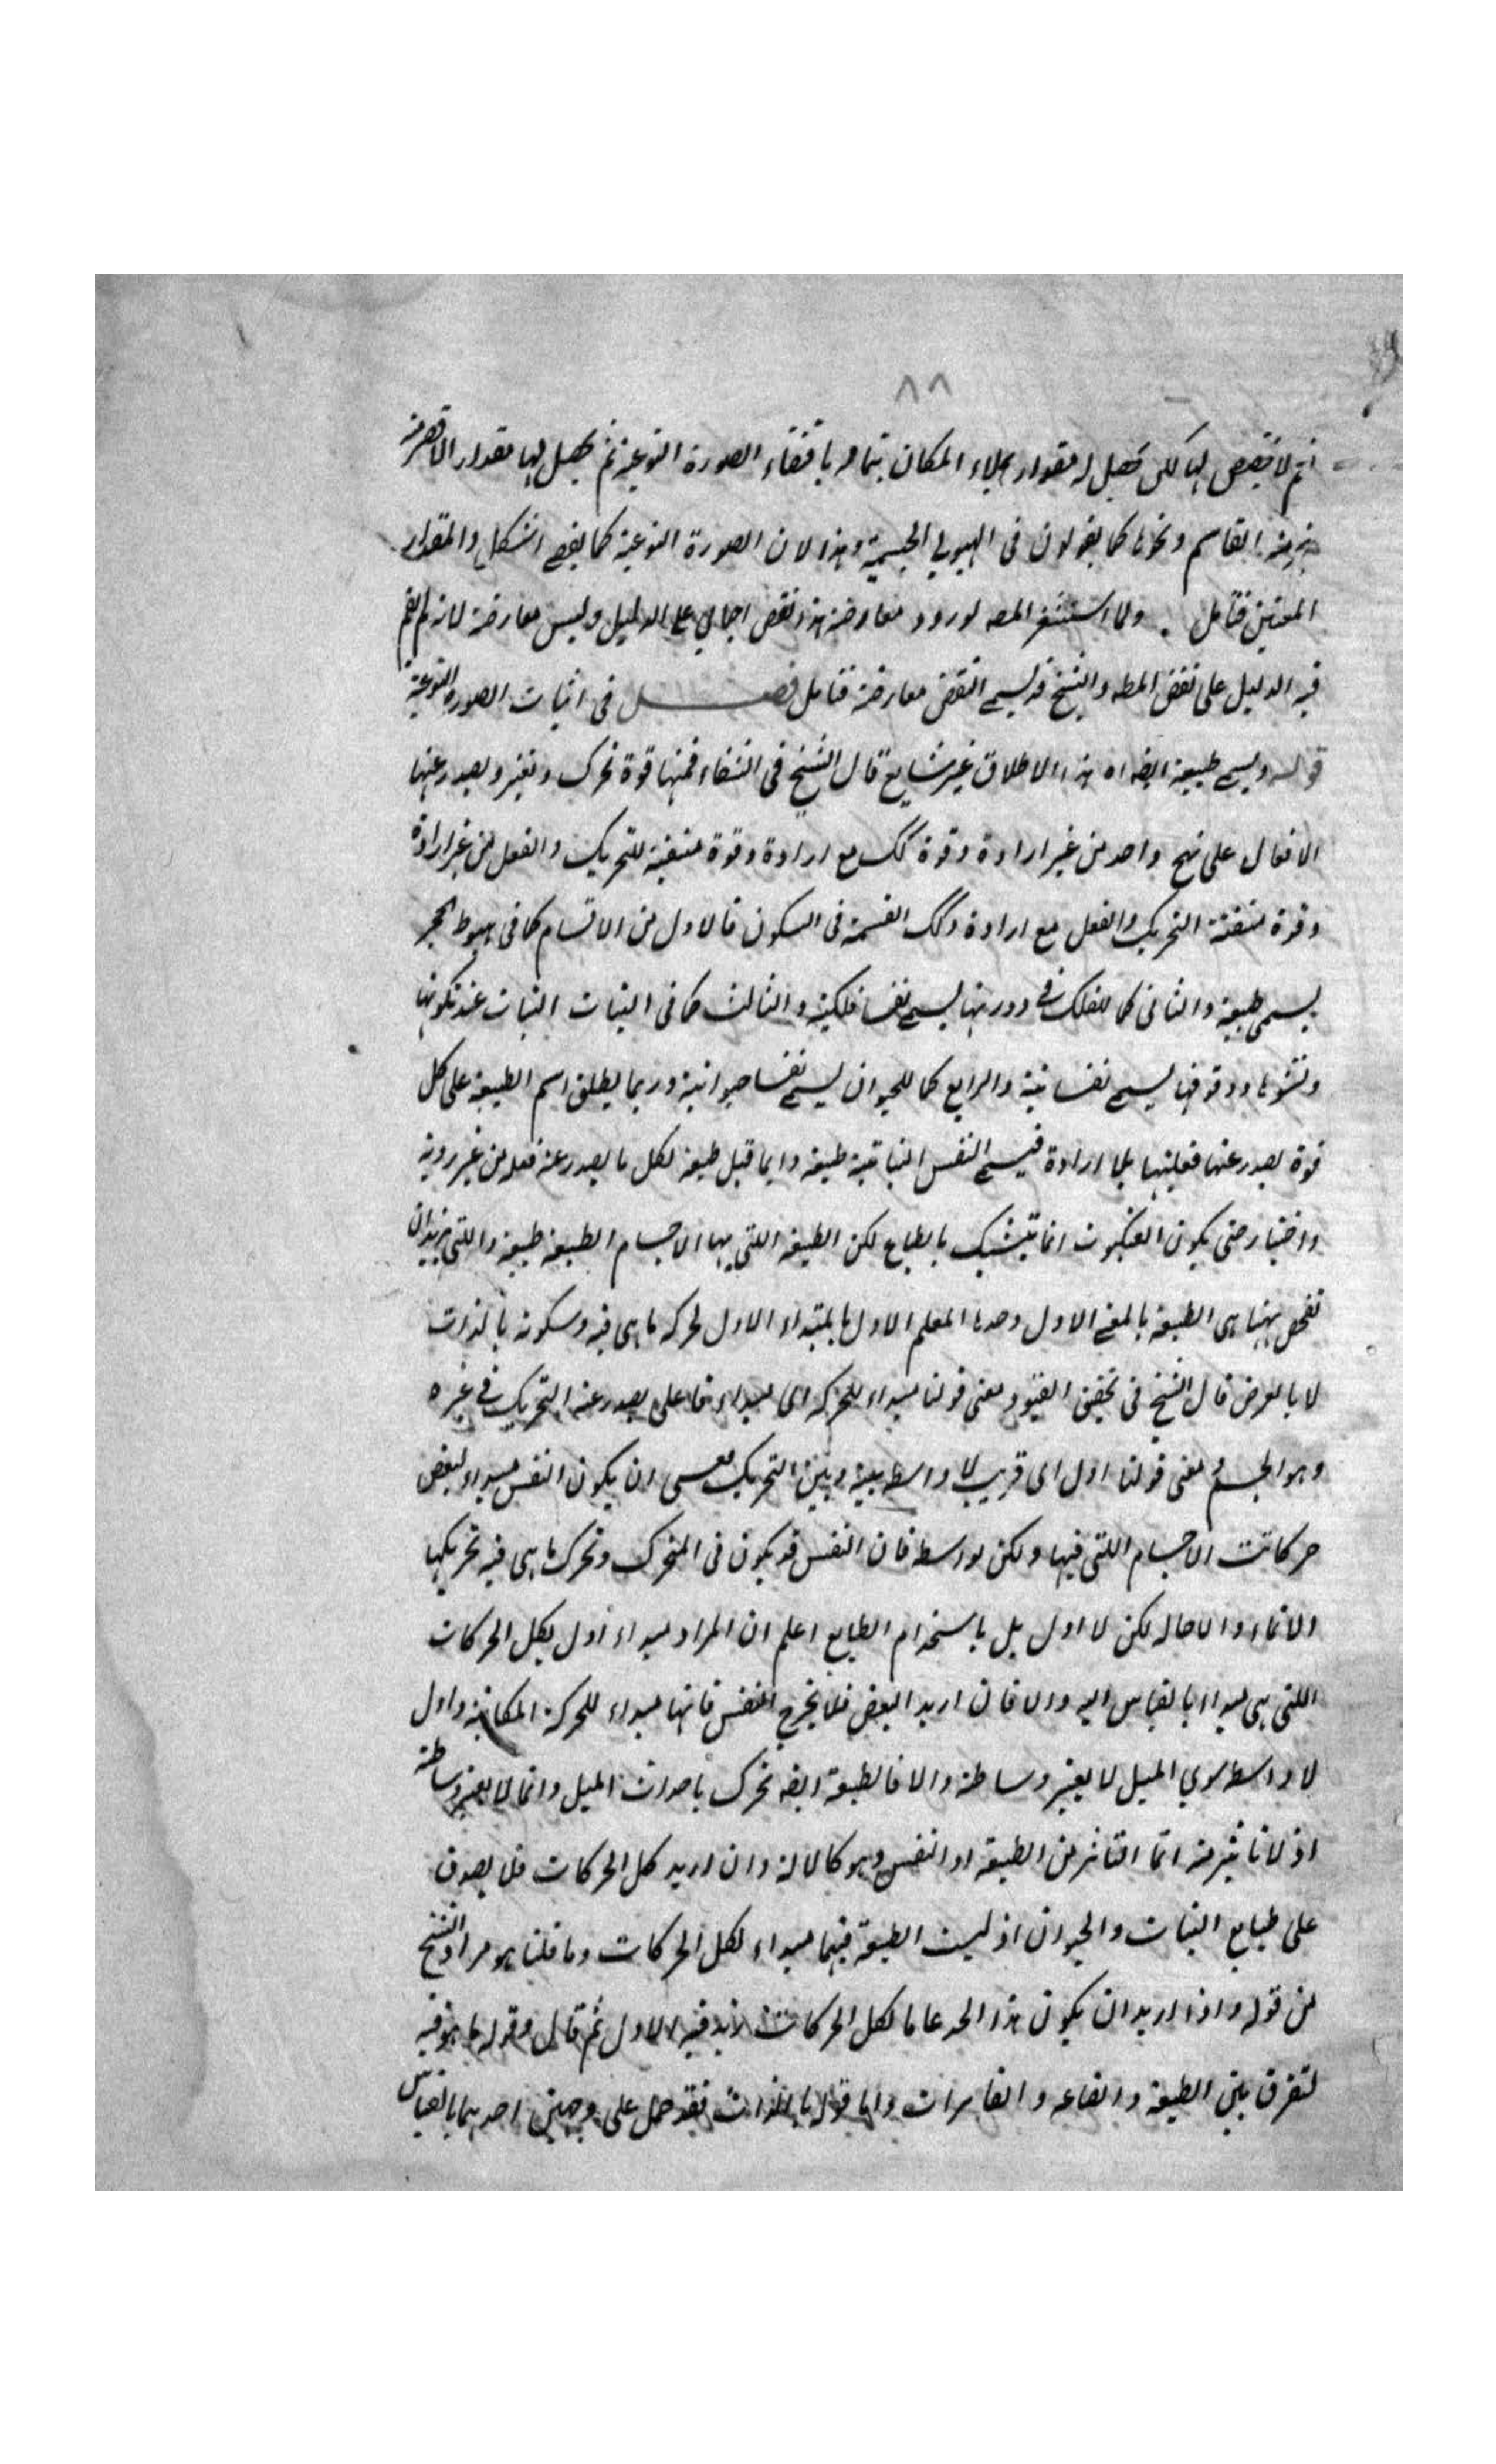 ٨٨
ثم لا تقتضى لها لكن تحصل له مقدار يملاء المكان بتمامه باقتضاء الصورة النوعية ثم يحصل لها مقدار الاقصر منه
القاسم ونحوها كما يقولون فى الهيولى الجسمية وهذا لان الصورة النوعية كما يقتضى الشكل والمقدار
المعينين فتأمل . ولما استشعر المصه لورود معارضة هذا نقض اجمالى على الدليل وليس معارضة لانه لم يقم
فيه الدليل على نقض المطه والشيخ قد يسمى النقض معارضة فتامل فصل فى اثبات الصورة النوعية
قوله ويسمى طبيعة ايضه اه هذا الاطلاق غير شايع قال الشيخ فى الشفاء فمنها قوة تحرك وتغير ويصدر عنها
الافعال على نهج واحد من غير ارادة وقوة كك مع ارادة وقوة متفننة للتحريك والفعل من غير ارادة
وقوة متفننة التحريك والفعل مع ارادة وكك القسمة فى السكون فالاول من الاقسام كما فى هبوط الحجر
يسمى طبيعة والثانى كما للفلك فى دورتها يسمى نفسا فلكية والثالث كما فى النبات النبات عند تكونها
ونشوها ووقوفها يسمى نفسا نبتية والرابع كما للحيوان يسمى نفسا حيوانية وربما يطلق اسم الطبيعة على كل
قوة يصدر عنها فعليتها بلا ارادة فيسمى النفس النباتية طبيعة وايما قيل طبيعة لكل ما يصدر عنه فعله من غير روية
واختيار حتى يكون العنكبوت انما تيشبك بالطباع لكن الطبيعة اللتى بها الاجسام الطبيعة طبيعة واللتى نريد ان
نفحص ههنا هى الطبيعة بالمعنى الاول وحدها المعلم الاول بالمبتداء الاول لحركه ما هى فيه وسكونه بالذات
لا بالعرض قال الشيخ فى تحقيق القيود معنى قولنا مبداء للحركه اى مبداء فاعلى يصدر عنه التحريك فى غيره
وهو الجسم ومعنى قولنا اول اى قريب لا واسطه بينه وبين التحريك فعسى ان يكون النفس مبداء لبعض
حركات الاجسام اللتى فيها ولكن بواسطه فان النفس قد يكون فى المتحرك وتحرك ما هى فيه تحريكها
والانماء والاحاله لكن لا اول بل باستخدام الطبايع اعلم ان المراد مبداء اول لكل الحركات
اللتى هى مبداء بالقياس اليه والا فان اريد البعض فلا يخرج النفس فانها مبداء للحركة المكانية واول
لا واسطه سوى الميل لا يعتبر وساطته والا فالطبيعة ايضه تحرك باحداث الميل وانما لا يعتبر وساطته
اذ لا تاثير منه انما التاثير من الطبيعة او النفس وهو كالالة وان اريد كل الحركات فلا يصدق
على طبايع النبات والحيوان اذ ليست الطبيعة فيهما مبداء لكل الحركات وما قلنا هو مراد الشيخ
من قوله واذا اريد ان يكون هذا الحد عاما لكل الحركات زيد فيه الاول ثم قال وقوله ما هو فيه
لتفرق بين الطبيعة و الصناعه و القاسرات واما قوله بالذات فقد حمل على وجهين احدهما بالقياس